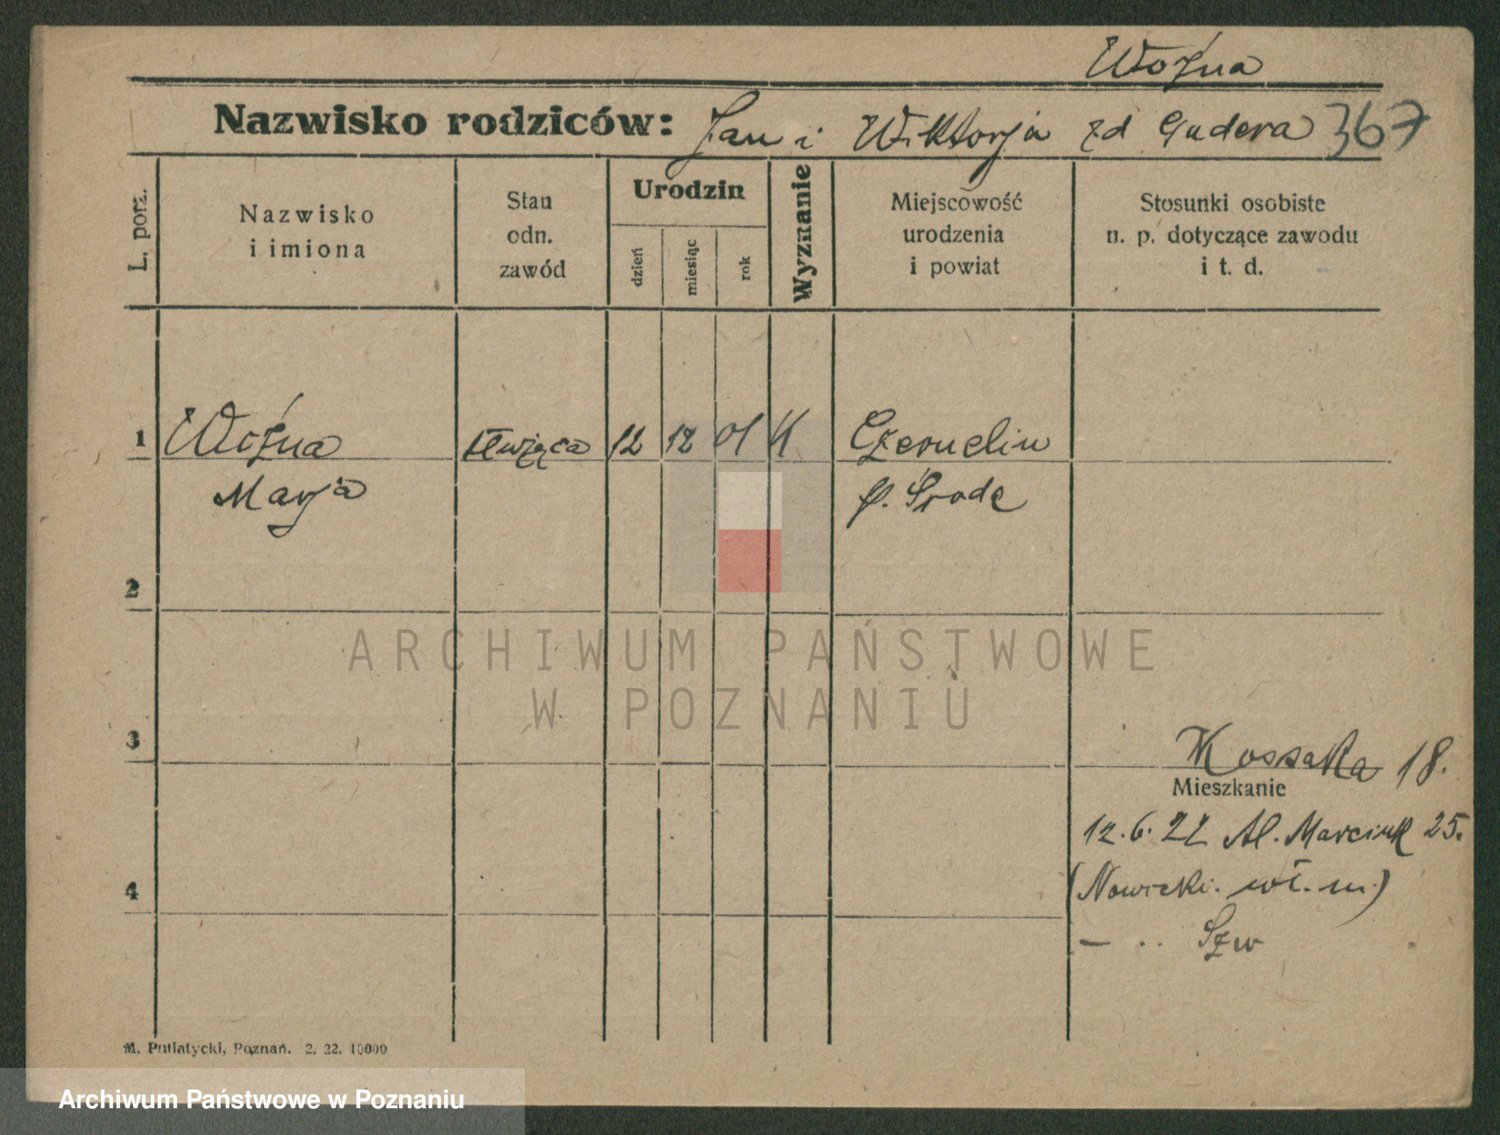 Woźna
Nazwisko rodziców: Jan i Wiktorja zd Gudera 367
L. porz.
Nazwisko
i imiona
Stan
odn.
zawód
Urodzin
dzień
miesiąc
rok
Wyznanie
Miejscowość
urodzenia
i powiat
Stosunki osobiste
n. p. dotyczące zawodu
i t. d.
1 Woźna 12 12 01 K Czernelin
Marja p. Środa
2
3
Kossaka 18.
Mieszkanie
12.6. Al. Marcink 25.
4
(Nowicki. wł. m.)
— ..
M. Putiatycki, Poznań. 2. 22. 10000
ARCHIWUM PAŃSTWOWE
W POZNANIU
Archiwum Państwowe w Poznaniu